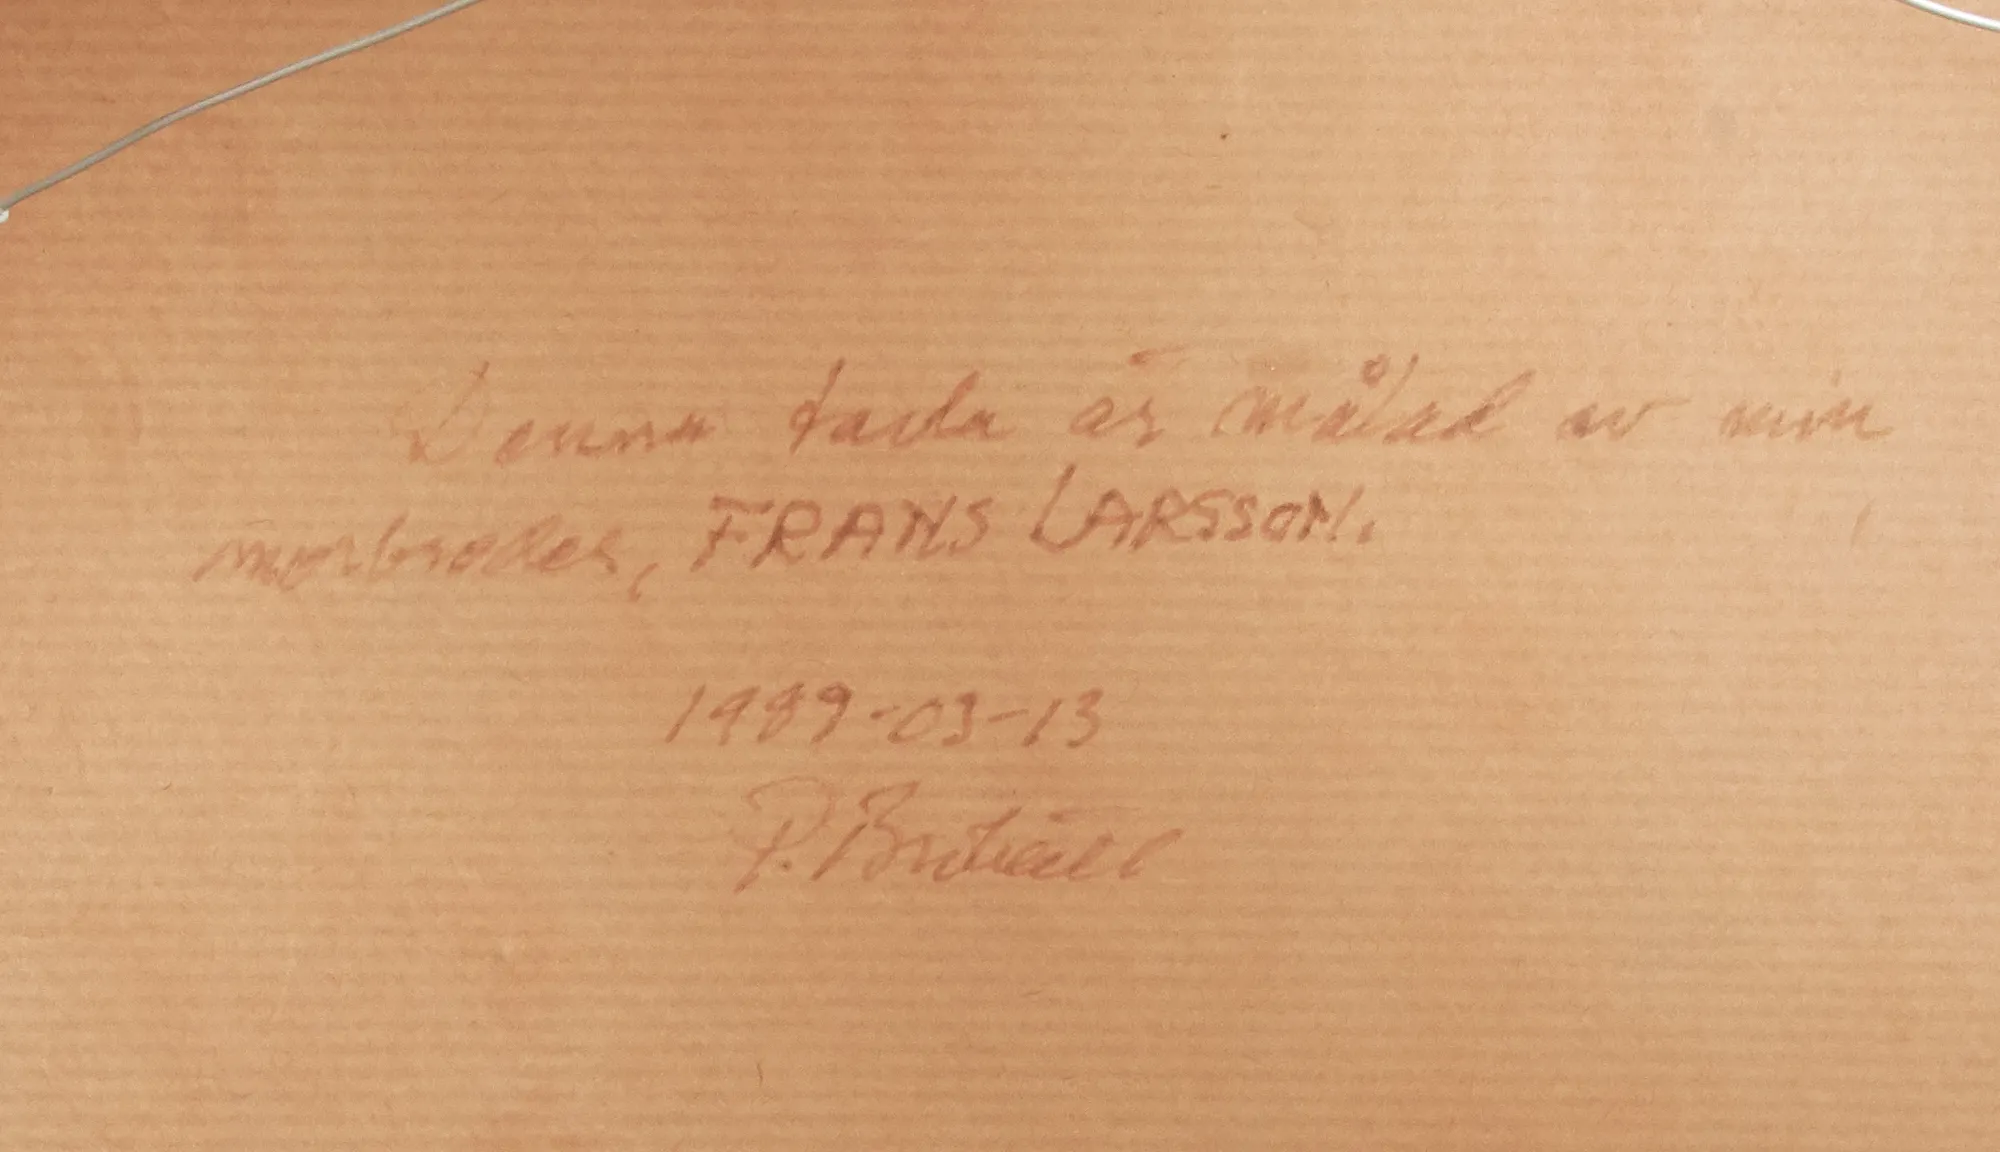 Denna tavla är målad av min
morbroder, FRANS LARSSON.
1989-03-13
P.